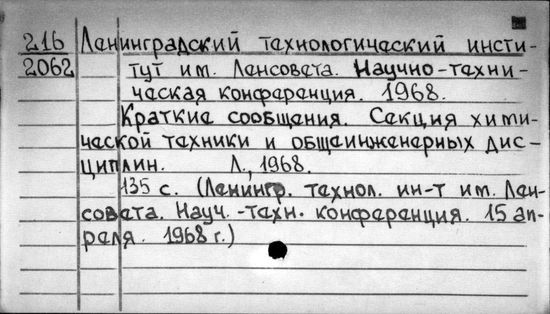 216 Ленинградский технологический инсти-
2062 тут им. Ленсовета. Научно-техни-
ческая конференция. 1968.
Краткие сообщения. Секция хими-
ческой техники и общеинженерных дис-
циплин. Л., 1968.
135 с. (Ленингр. технол. ин-т им. Лен-
совета. Науч.-техн. конференция. 15 ап-
реля. 1968 г.)